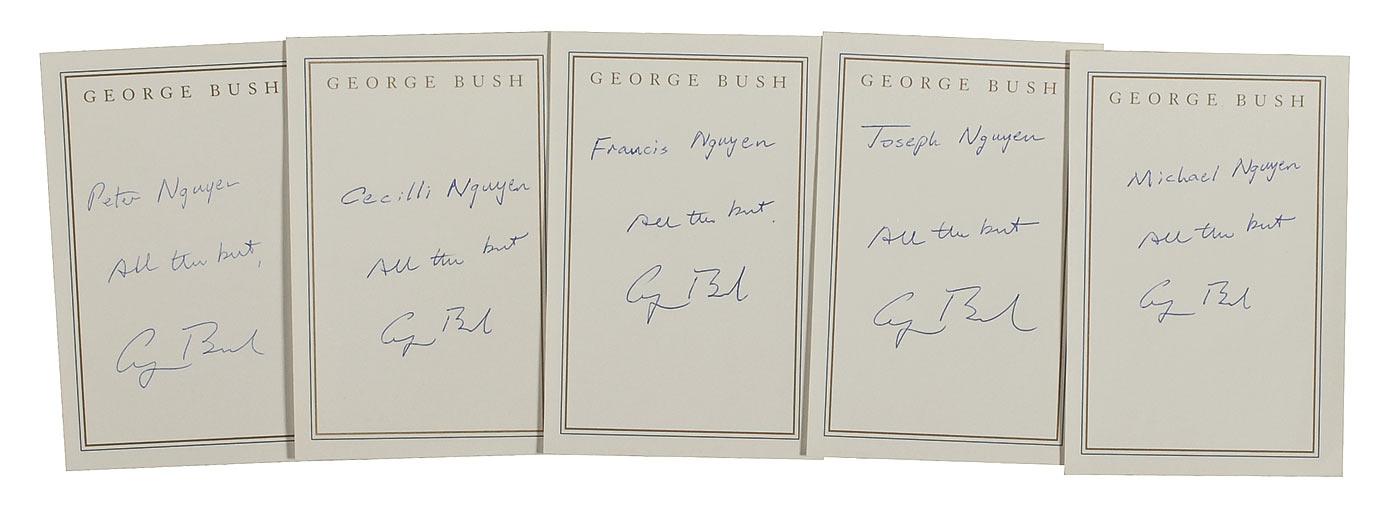 GEORGE BUSH
Peter Nguyen
All the best,
George Bush
GEORGE BUSH
Cecilli Nguyen
All the best
George Bush
GEORGE BUSH
Francis Nguyen
All the best.
George Bush
GEORGE BUSH
Joseph Nguyen
All the best
George Bush
GEORGE BUSH
Michael Nguyen
All the best
George Bush